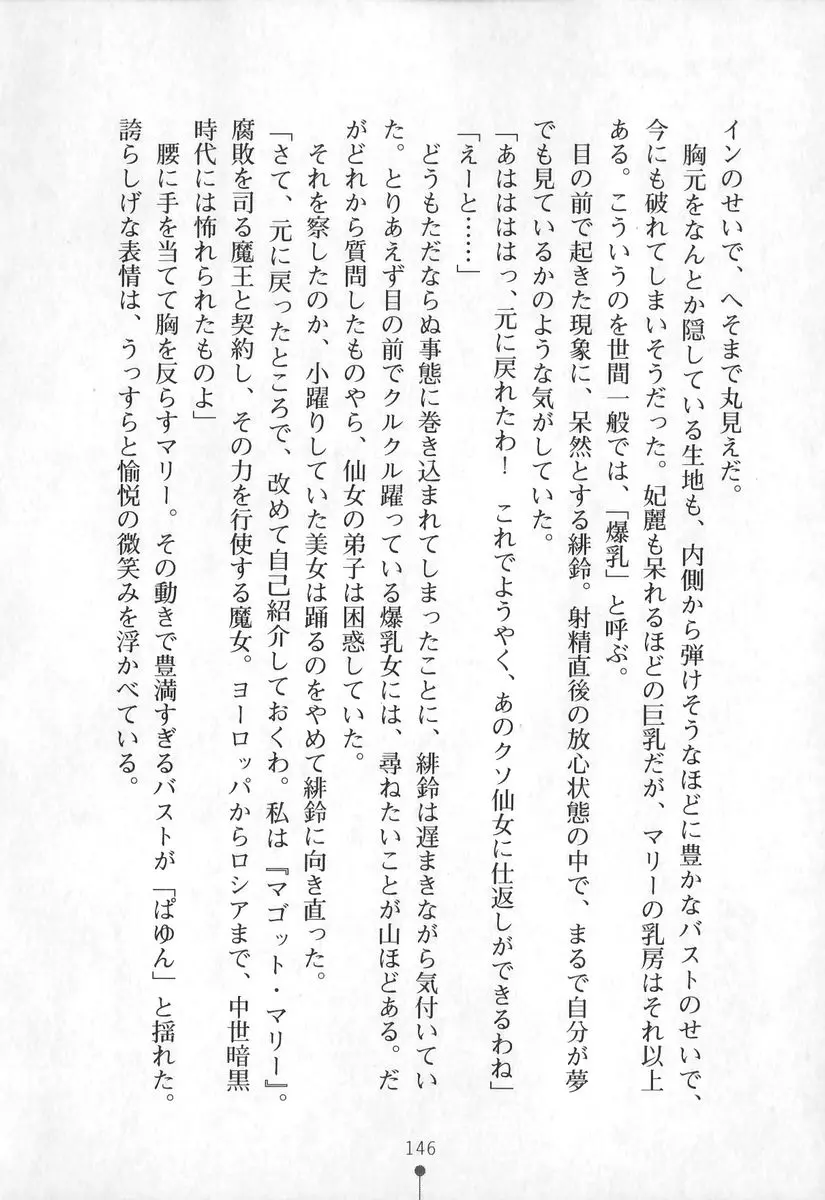 インのせいで、へそまで丸見えだ。
　胸元をなんとか隠している生地も、内側から弾けそうなほどに豊かなバストのせいで、
今にも破れてしまいそうだった。妃麗も呆れるほどの巨乳だが、マリーの乳房はそれ以上
である。こういうのを世間一般では、「爆乳」と呼ぶ。
　目の前で起きた現象に、呆然とする緋鈴。射精直後の放心状態の中で、まるで自分が夢
でも見ているかのような気がしていた。
「あはははっ、元に戻れたわ！　これでようやく、あのクソ仙女に仕返しができるわね」
「えーと……」
　どうもただならぬ事態に巻き込まれてしまったことに、緋鈴は遅まきながら気付いてい
た。とりあえず目の前でクルクル躍っている爆乳女には、尋ねたいことが山ほどある。だ
がどれから質問したものやら、仙女の弟子は困惑していた。
　それを察したのか、小躍りしていた美女は踊るのをやめて緋鈴に向き直った。
「さて、元に戻ったところで、改めて自己紹介しておくわ。私は『マゴット・マリー』。
腐敗を司る魔王と契約し、その力を行使する魔女。ヨーロッパからロシアまで、中世暗黒
時代には怖れられたものよ」
　腰に手を当てて胸を反らすマリー。その動きで豊満すぎるバストが「ぱゆん」と揺れた。
誇らしげな表情は、うっすらと愉悦の微笑みを浮かべている。
146